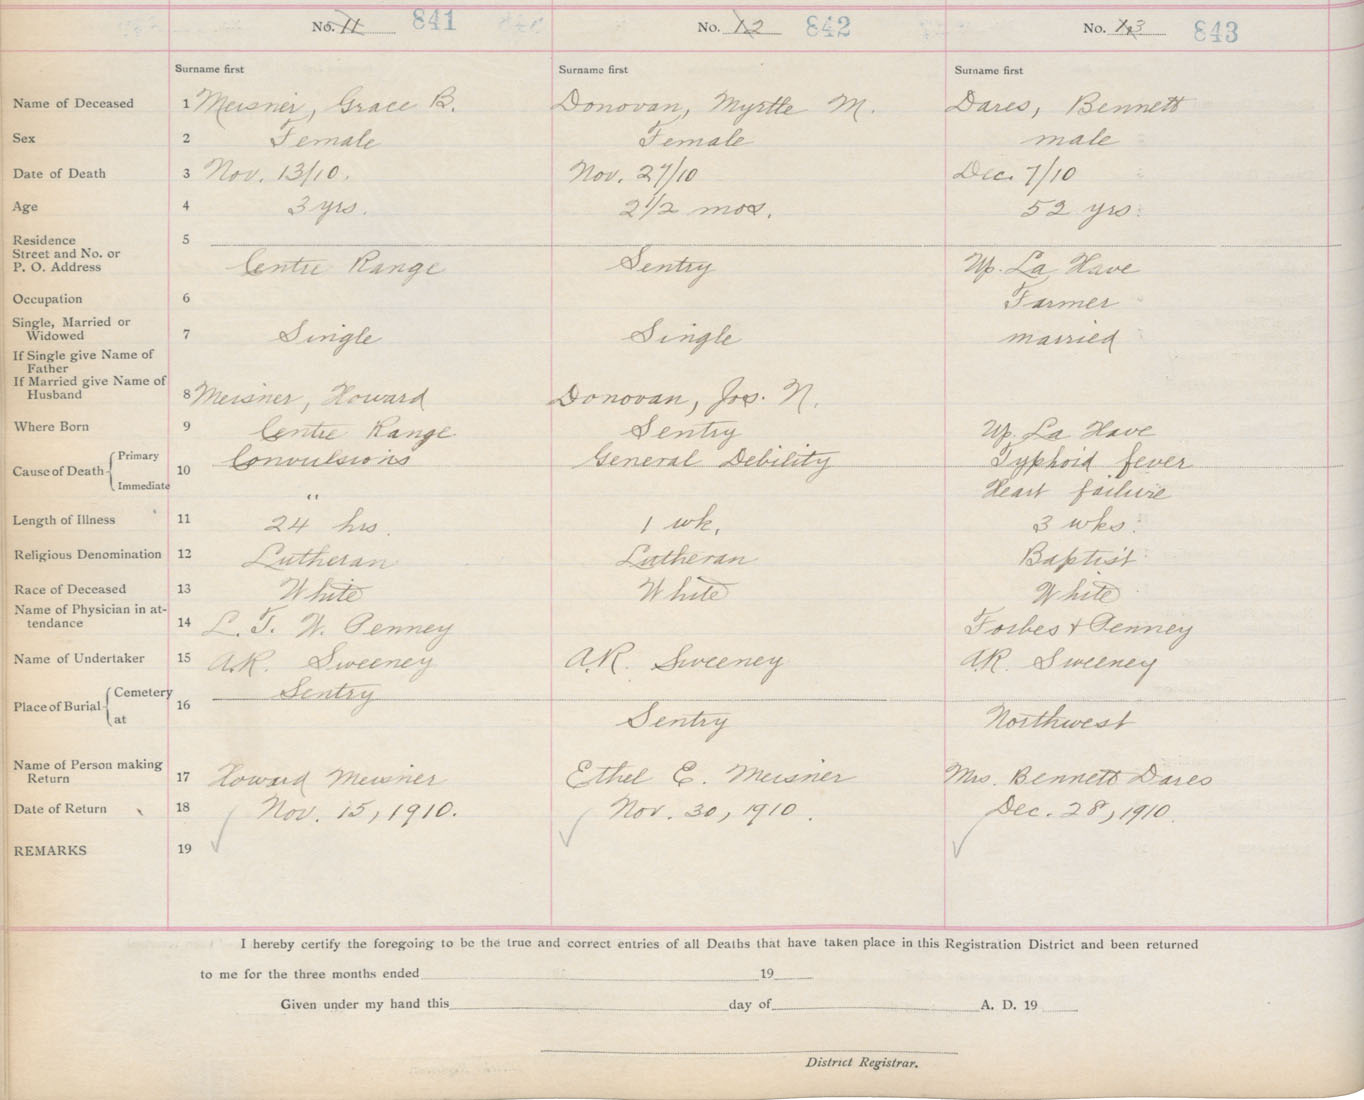 No. 11 841 No. 12 842 No. 13 843
Surname first Surname first Surname first
Name of Deceased 1 Meisner, Grace B. Donovan, Myrtle M. Dares, Bennett
Sex 2 Female Female male
Date of Death 3 Nov. 13/10. Nov. 27/10 Dec. 7/10
Age 4 3 yrs. 2 1/2 mos. 52 yrs.
Residence 5
Street and No. or
P. O. Address Centre Range Sentry Up. La Have
Occupation 6 Farmer
Single, Married or
Widowed 7 Single Single married
If Single give Name of
Father
If Married give Name of
Husband 8 Meisner, Howard Donovan, Jos. N.
Where Born 9 Centre Range Sentry Up. La Have
Cause of Death 10 Primary Convulsions General Debility Typhoid fever
Immediate " Heart failure
Length of Illness 11 24 hrs. 1 wk. 3 wks.
Religious Denomination 12 Lutheran Lutheran Baptist
Race of Deceased 13 White White White
Name of Physician in at-
tendance 14 L. T. W. Penney Forbes + Penney
Name of Undertaker 15 A.R. Sweeney A.R. Sweeney A.R. Sweeney
Place of Burial 16 Cemetery Sentry
at Sentry Northwest
Name of Person making
Return 17 Howard Meisner Ethel E. Meisner Mrs. Bennett Dares
Date of Return 18 Nov. 15, 1910. Nov. 30, 1910. Dec. 28, 1910.
REMARKS 19
I hereby certify the foregoing to be the true and correct entries of all Deaths that have taken place in this Registration District and been returned
to me for the three months ended 19
Given under my hand this day of A. D. 19
District Registrar.